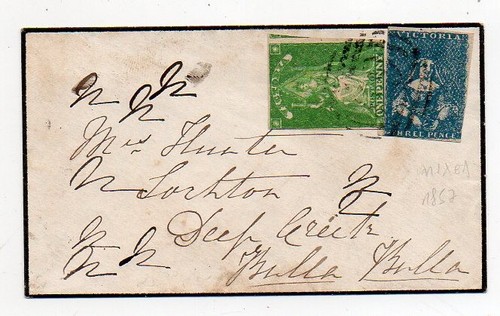 VICTORIA
ONE PENNY
THREE PENCE
Mrs Hunter
Lochton
Deep Creek
Bulla Bulla
1857